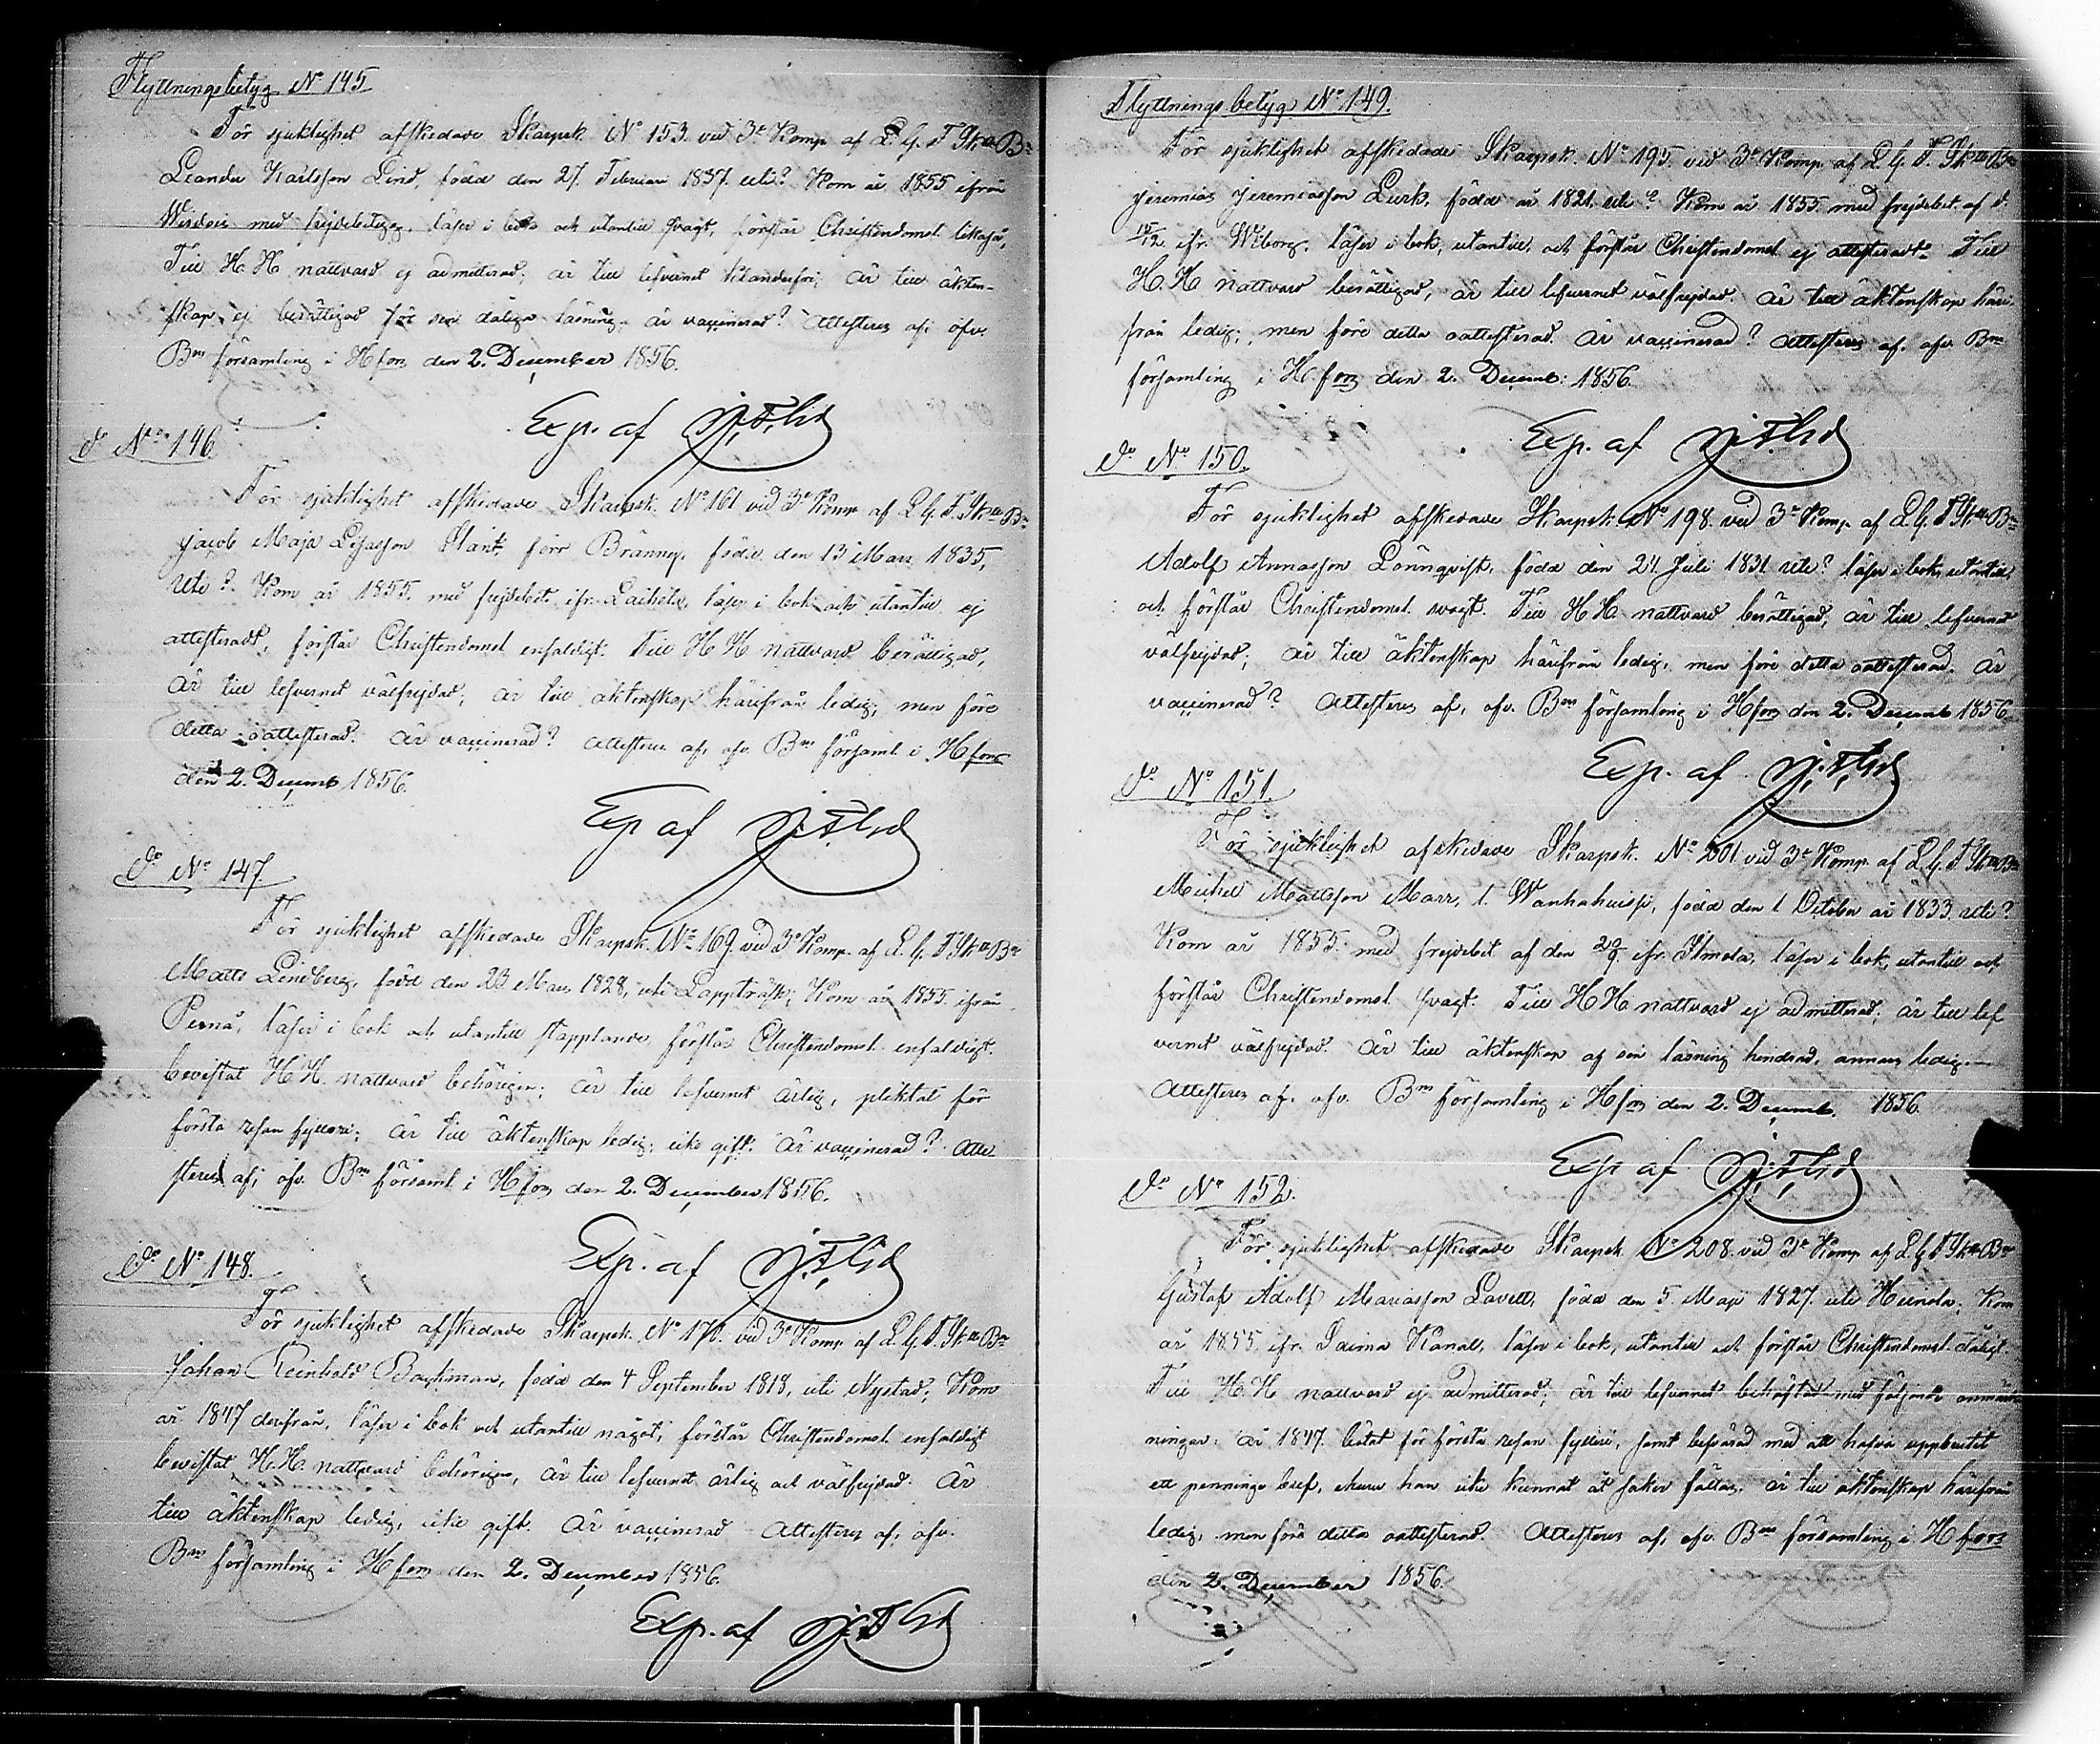 Flyttningsbetyg No 145
För sjuklighet afskedade Skarpsk. No 153 vid 3e Komp. af L. G. F. Sk. Bn
Leander Karlsson Lind, född den 27. Februari 1837. uti? Kom år 1855 ifrån
med frejdebetyg, läser i bok och utantill svagt, förstår Christendomet likaså,
Till H. H. nattvard ej admitterad; är till lefvernet klanderfri; är till äkten-
skap ej berättigad för sin dåliga läsning. är vaccinerad? Attesteras af, ofv.
Bns församling i H fors den 2. December 1856.
Exp. af
do No 146.
För sjuklighet afskedade Skarpsk. No 161 vid 3e Komp af L. G. F. Sk. Bn
Jacob Maja Lisasson Plant, förr Bränney, född den 13 Mars 1835,
uti? Kom år 1855. med frejdebet. ifr. Laihela, läser i bok och utantill ej
attesteradt, förstår Christendomet enfaldigt. Till H H nattvard berättigad,
är till lefvernet välfrejdad; är till äktenskap härifrån ledig; men före
detta oattesterad. är vaccinerad? Attesteras af, ofv. Bns församl. i H fors
den 2. Decemb 1856.
Exp af
do No 147.
För sjuklighet afskedade Skarpsk. No 169. vid 3e Komp. af L. G. F. Sk. Bn
Matts Lindberg, född den 23 Mars 1828, uti Lappträsk; Kom år 1855. ifrån
Pernå, läser i bok och utantill stapplande, förstår Christendomet enfaldigt.
bevistat H. H. nattvard behörigen; är till lefvernet ärlig, pliktat för
första resan fylleri; är till äktenskap ledig, icke gift. är vaccinerad? Atte
steras af, ofv. Bns församl. i H fors den 2. December 1856.
Exp. af
do No 148.
För sjuklighet afskedade Skarpsk. No 171. vid 3e Komp. af L. G. F. Sk. Bn
Johan Reinhold Bachman, född den 4 September 1818, uti Nystad; Kom
år 1847 derifrån, läser i bok och utantill något, förstår Christendomet enfaldigt
bevistat H. H. nattvard behörigen, är till lefvernet ärlig och välfrejdad. Är
till äktenskap ledig, icke gift. är vaccinerad Attesteras af, ofv.
Bns församling i H fors den 2. December 1856.
Exp. af
Flyttningsbetyg No 149.
För sjuklighet afskedade Skarpsk. No 195. vid 3e Komp. af L. G. F. Sk. Bn
Jeremias Jeremiasson Lurk, född år 1821. uti? Kom år 1855. med frejdebet. af d.
ifr. Wiborg. läser i bok, utantill, och förstår Christendomet ej attesteradt. Till
H. H. nattvard berättigad, är till lefvernet välfrejdad. är till äktenskap här-
från ledig; men före detta oattesterad. är vaccinerad? Attesteras af. ofv. Bns
församling i H. fors den 2. Decemb: 1856.
Exp. af
do No 150.
För sjuklighet afskedade Skarpsk. No 198. vid 3e Komp. af L. G. F. Sk. Bn
Adolf Annasson Lönnqvist, född den 24 Juli 1831. uti? läser i bok, utantill,
och förstår Christendomet svagt. Till H H. nattvard berättigad, är till lefvernet
välfrejdad; är till äktenskap härifrån ledig, men före detta oattesterad. är
vaccinerad? Attesteras af, ofv. Bns församling i H fors den 2. Decemb 1856
Exp. af
do No 151.
För sjuklighet afskedade Skarpsk. No 201. vid 3e Komp. af L. G. F. Sk. Bn
Michel Mattsson Marr, l. född den 1 October år 1833. uti?
Kom år 1855. med frejdebet af den ifr. Ilmola, läser i bok, utantill och
förstår Christendomet svagt. Till H H. nattvard ej admitterad; är till lef
vernet välfrejdad. är till äktenskap af sin läsning hindrad, annars ledig.
Attesteras af. ofv. Bns församling i H fors den 2. Decemb. 1856.
Exp af
do No 152.
För sjuklighet afskedade Skarpsk. No 208. vid 3e Komp af L. G. F. Sk. Bn
Gustaf Adolf Mariasson Lavell, född den 5. Maji 1827. uti Heinola; Kom
år 1855. ifr. Saima Kanal, läser i bok, utantill och förstår Christendomet dåligt
Till H. H nattvard ej admitterad; är till lefvernet behäftad med följande anmärk
ningar: år 1847. bötat för första resan fylleri, samt besvärad med att hafva uppbrutit
ett penninge bref, hvari han icke kunnat åt saken fällas. är till äktenskap härifrån
ledig, men före detta oattesterad. Attesteras af, ofv. Bns församling i H fors
den 2. December 1856.